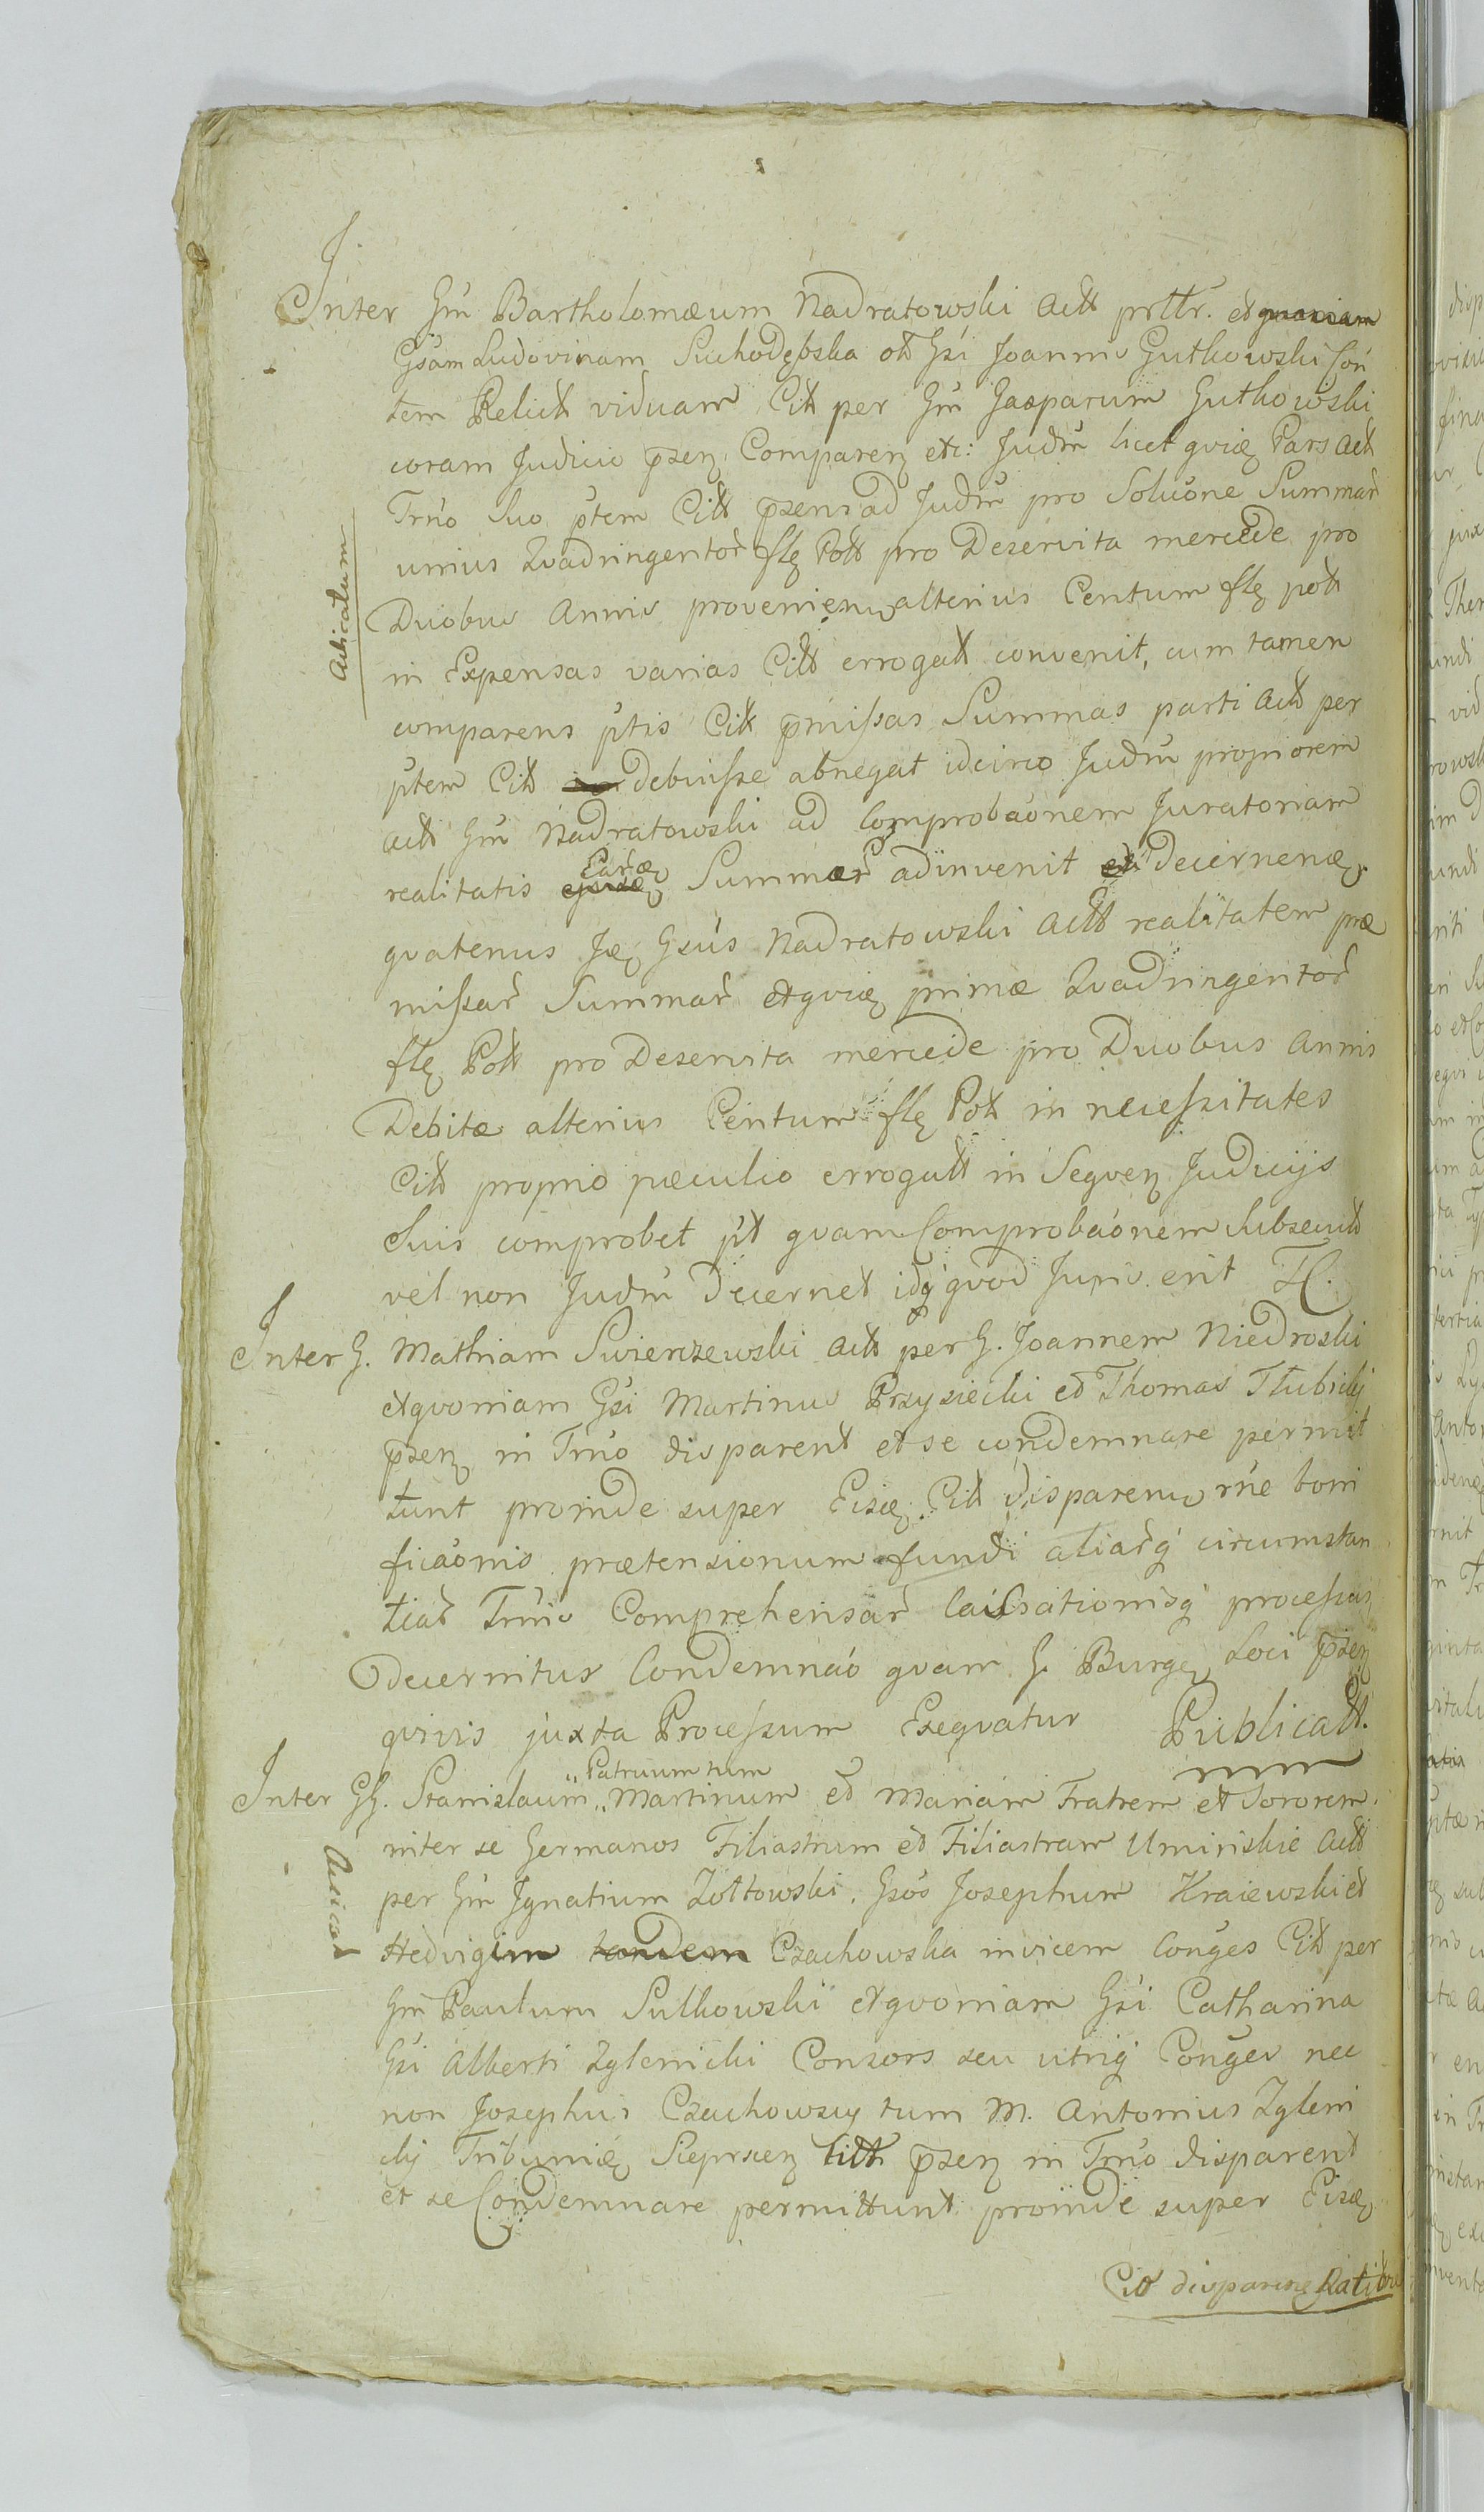 Inter Gm̃ Bartholomæum Nadratowski Actt prttr. et quoniam
Gsam Ludovinam Suchodębska ott Gsi Joannis Gutkowski Con
tem Relictt viduam Citt per Gm̃ Gasparum Gutkowski
coram Judicio p̃sen Comparen etc: Judm̃ licet qviæ Pars Actt
Trno Suo ptem Citt p̃sens ad Judm̃ pro Soluone Summar̃
unius Qvadringentor̃ flę Poll pro Deservita mercede pro
Duobus Annis provenien alterius Centum flę poll
in Expensas varias Citt errogatt convenit, cum tamen
comparens ptis Citt p̃missas Summas parti Actt per
ptem Citt debuisse abnegat idcirco Judm̃ propriorem
Actt Gm̃ Nadratowski ad Comprobaonem Juratoriam
realitatis Earæ Summar̃ adinvenit et decernenæ
qvatenus Jæ Gsus Nadratowski Actt realitatem præ
missar̃ Summar̃ etqviæ primæ Qvadringentor̃
flę Poll pro Deservita mercede pro Duobus Annis
Debitæ alterius Centum flę Poll in necessitates
Citt proprio pæculio errogatt in Seqven Judicijs
Suis comprobet ptt qvam Comprobaonem Subsecutt
vel non Judm̃ Decernet idq qvod Juris erit
Inter G. Mathiam Swierczewski Actt per G. Joannem Niedroski
etqvoniam Gsi Martinus Przysiecki et Thomas Tłubicky
p̃sen in Trno disparent et se condemnare permit
tunt proinde super Eisæ Citt disparenu rne boni
ficaonis prætensionum fundi aliar̃q circumstan
tiar̃ Trno Comprehensar̃ Cassationisq processus
Decernitur Condemnao qvam G. Burgę Loci p̃sen
qvivis juxta Processum Exeqvatur Publicatt.
Patruum tum
Inter GG. Stanislaum „ Martinum et Mariam Fratrem et Sororem
inter se Germanos Filiastrum et Filiastram Uminskie Actt
per Gm̃ Ignatium Zołtowski, Gsos Josephum Kraiewski et
Hedvigim tandem Czachowska invicem Conges Citt per
Gm̃ Paulum Sulkowski etqvoniam Gsi Catharina
Gsi Alberti Zglenicki Consors seu utriq Conges nec
non Josephus Czachowscy tum M. Antonius Zgleni
cky Tribuniæ Sieprscen Citt p̃sen in Trno disparent
et se Condemnare permittunt proinde super Eisæ
Citt disparæ
Acticatum
Acticat